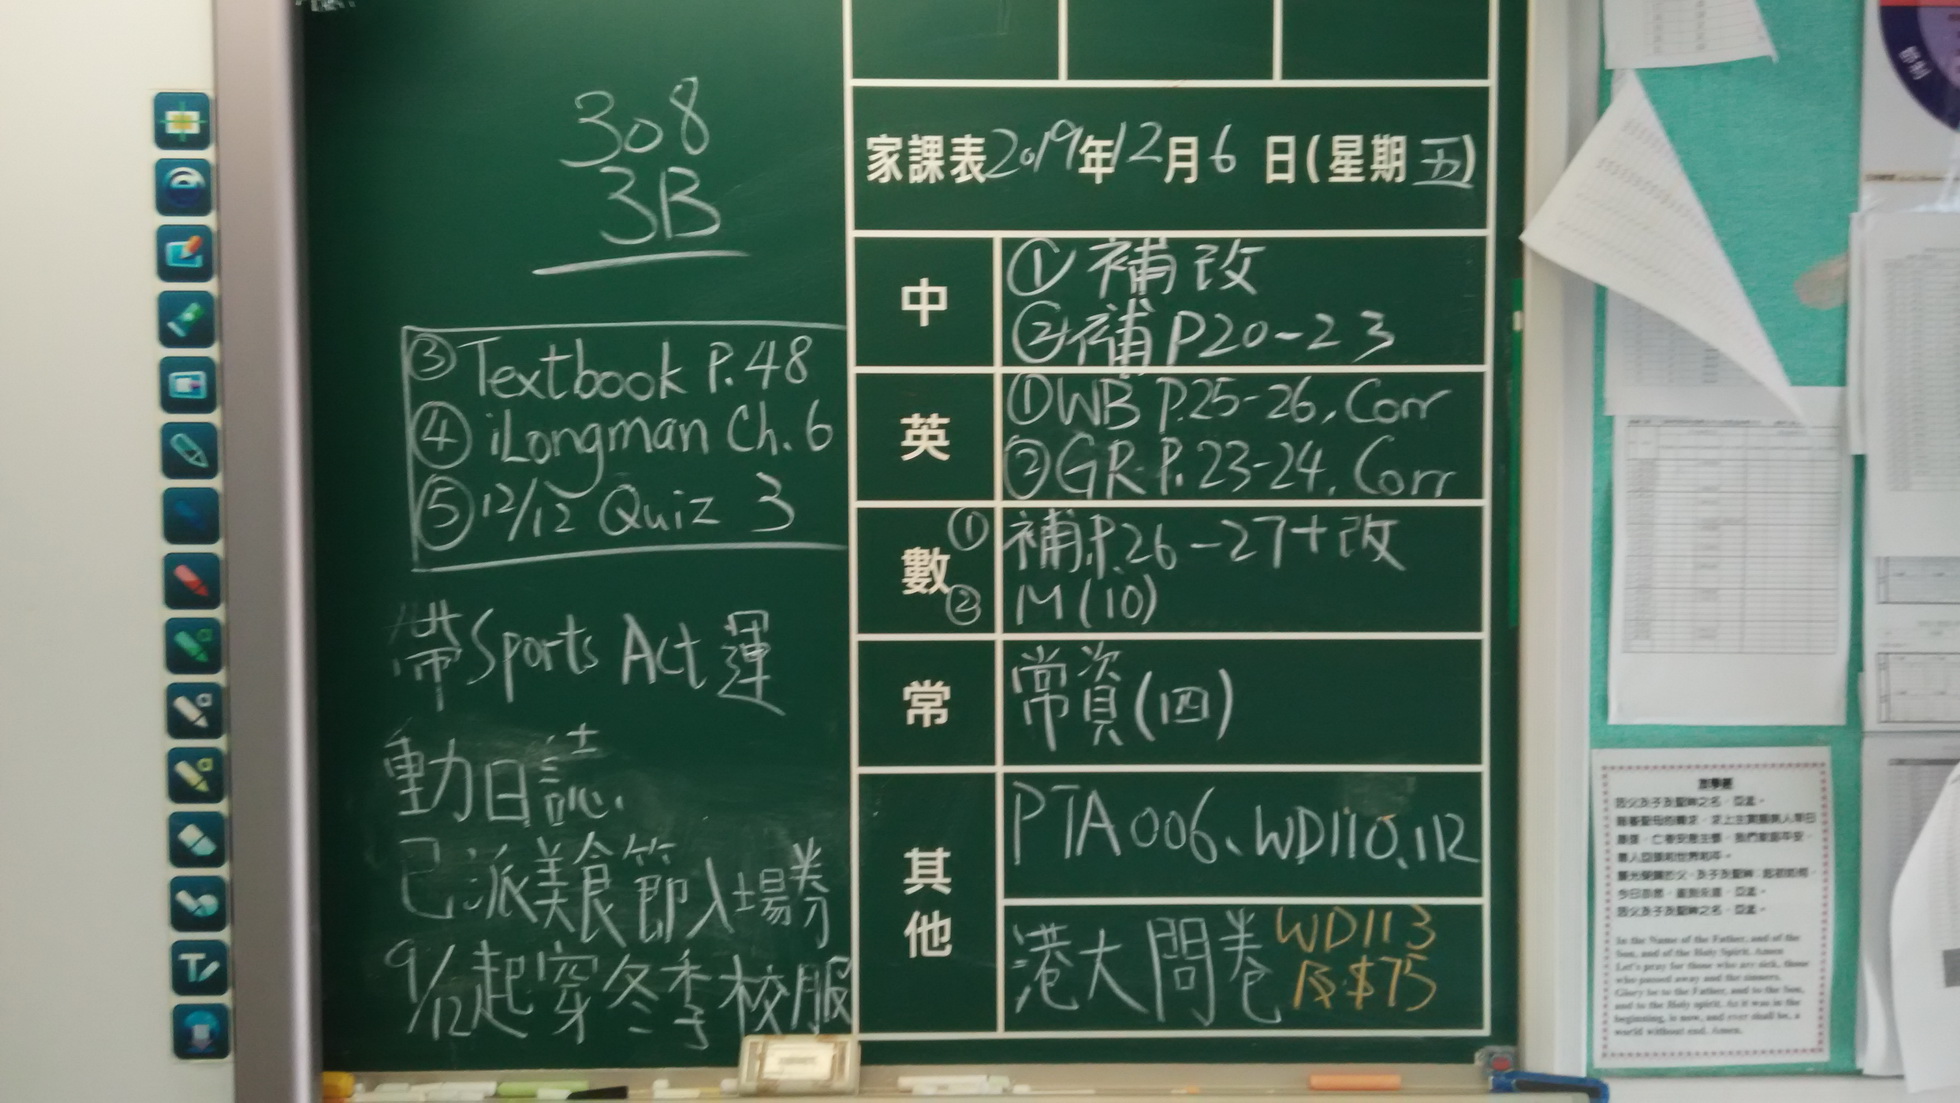 308
3B
③ Textbook P.48
④ iLongman Ch.6
⑤ 12/12 Quiz 3
帶 Sports Act 運
動日誌.
已派美食節入場券
9/12起穿冬季校服
家課表 2019年12月6日(星期五)
中
① 補改
② 補 P20-23
英
① WB P.25-26, Corr
② GR P.23-24, Corr
數
① 補.P.26-27+改
② M(10)
常
常資(四)
其他
PTA006、WD110、112
港大問卷 WD113
及$75
In the Name of the Father, and of the
Son, and of the Holy Spirit. Amen
Let's pray for those who are sick, those
who passed away and the sinners.
Glory be to the Father, and to the Son,
and to the Holy spirit. As it was in the
beginning, is now, and ever shall be, a
world without end. Amen.